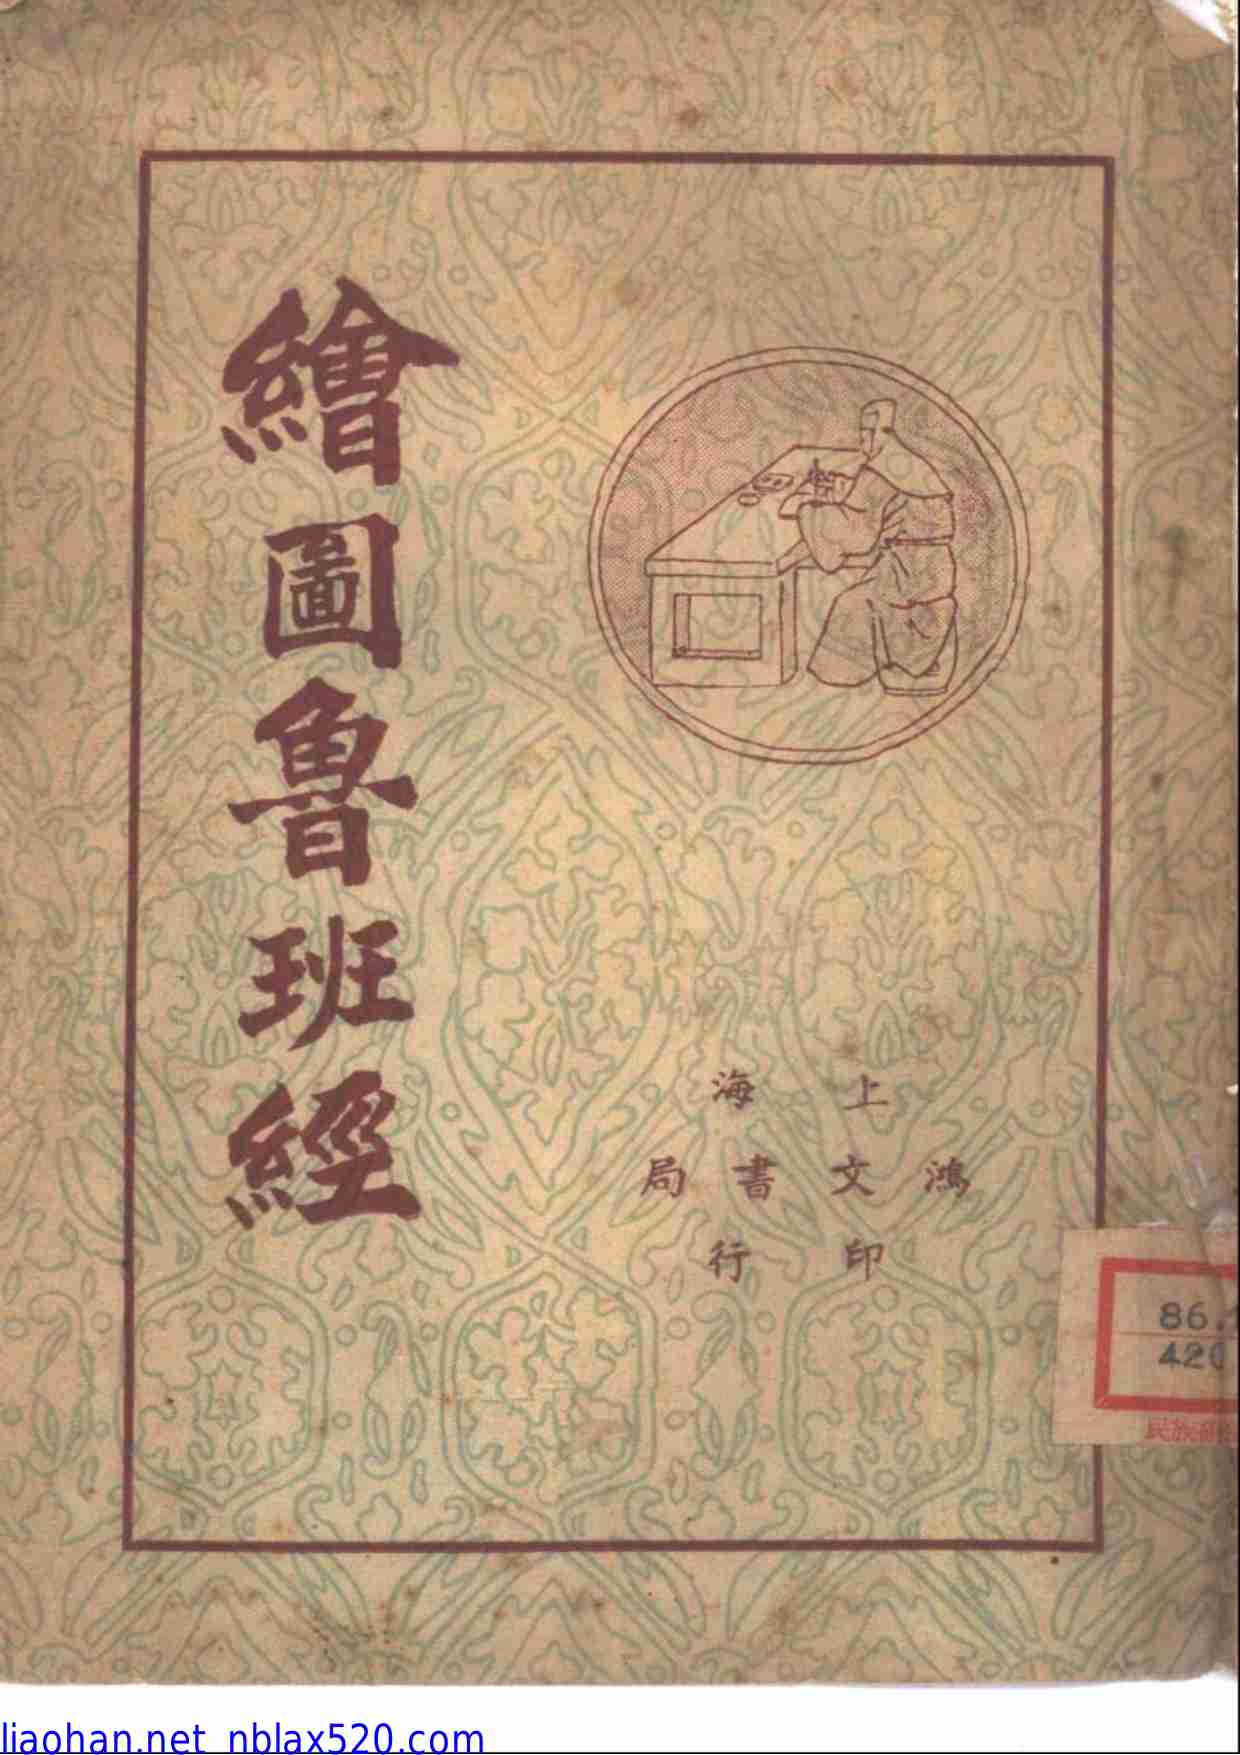 繪圖魯班經
上海
鴻文書局
印行
86.
420
民族
liaohan.net nblax520.com